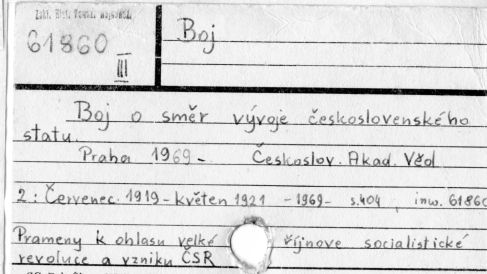 61860
III
Boj
Boj o směr vývoje československého
statu.
Praha 1969- Českoslov. Akad. Věd
2: Červenec 1919 - květen 1921 -1969- s.404, inw. 61860
Prameny k ohlasu velké říjnove socialistické
revoluce a vzniku ČSR